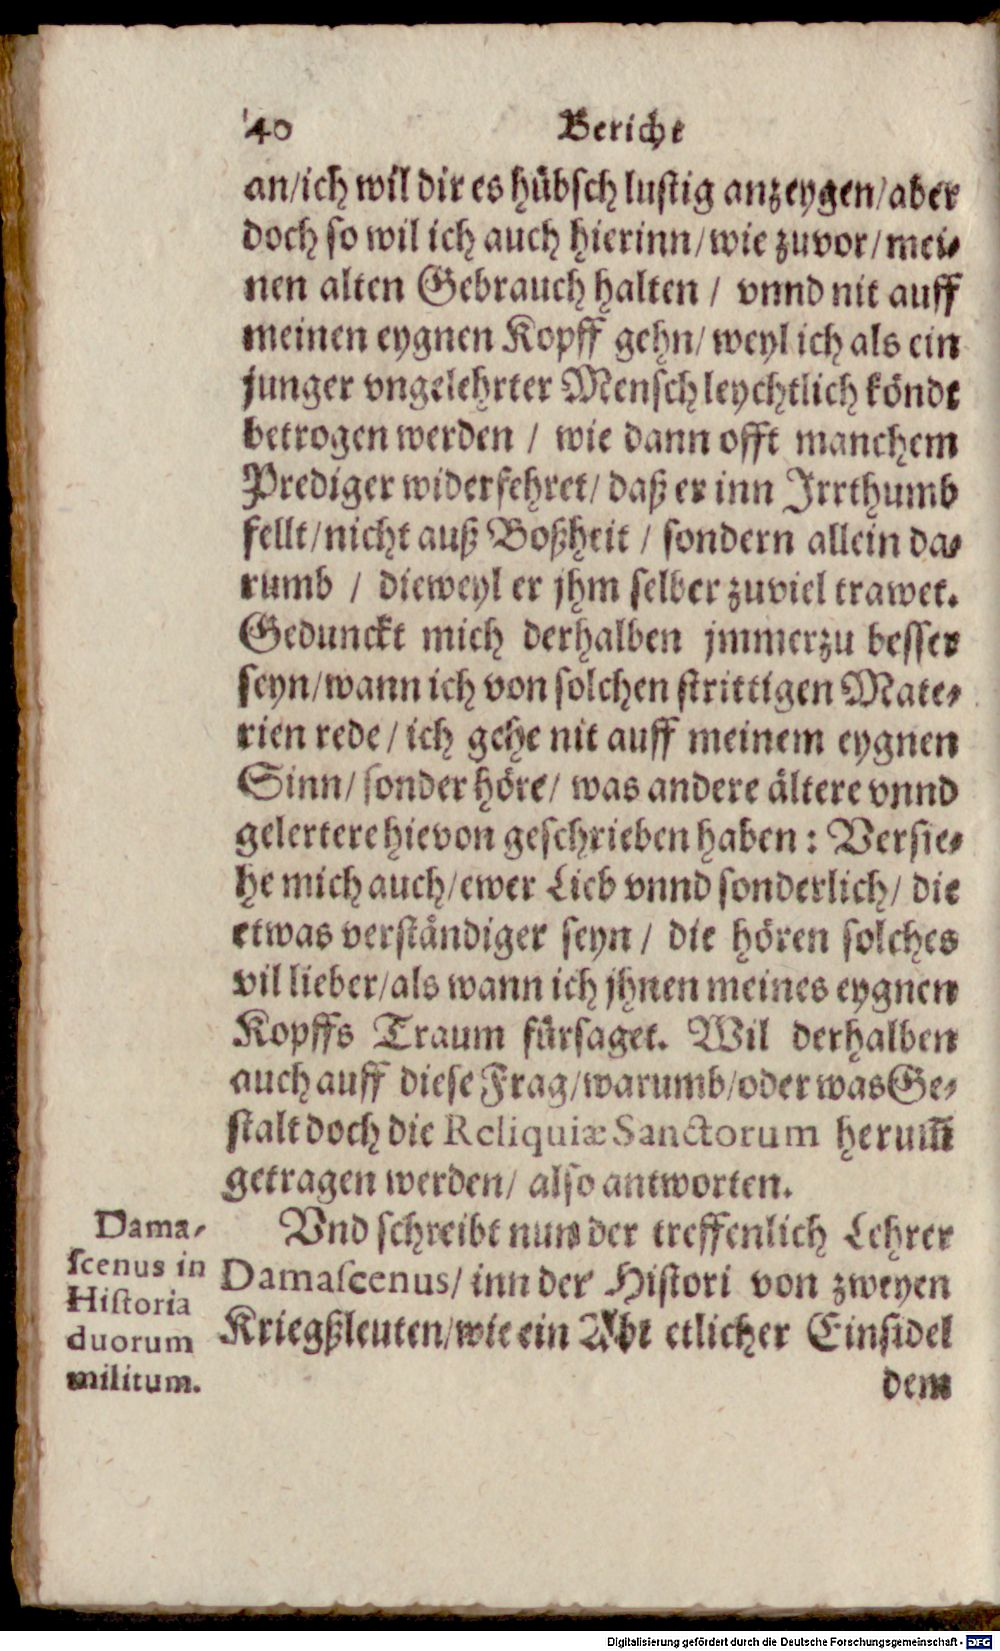 40 Bericht
an/ich wil dir es hübsch lustig anzeygen/aber
doch so wil ich auch hierinn/wie zuvor/mei-
nen alten Gebrauch halten / vnnd nit auff
meinen eygnen Kopff gehn/weyl ich als ein
junger vngelehrter Mensch leychtlich köndt
betrogen werden / wie dann offt manchem
Prediger widerfehret/daß er inn Jrrthumb
fellt/nicht auß Boßheit / sondern allein da-
rumb / dieweyl er jhm selber zuviel trawet.
Gedunckt mich derhalben jmmerzu besser
seyn/wann ich von solchen strittigen Mate-
rien rede/ich gehe nit auff meinem eygnen
Sinn/sonder höre/ was andere ältere vnnd
gelertere hievon geschrieben haben: Versie-
he mich auch/ewer Lieb vnnd sonderlich/die
etwas verständiger seyn / die hören solches
vil lieber/als wann ich jhnen meines eygnen
Kopffs Traum fürsaget. Wil derhalben
auch auff diese Frag/warumb/oder was Ge-
stalt doch die Reliquiæ Sanctorum herum̃
getragen werden/ also antworten.
Vnd schreibt nun der treffenlich Lehrer
Damaſcenus/inn der Histori von zweyen
Kriegßleuten/wie ein Abt etlicher Einsidel
dem
Dama-
ſcenus in
Hiſtoria
duorum
militum.
Digitalisierung gefördert durch die Deutsche Forschungsgemeinschaft - DFG